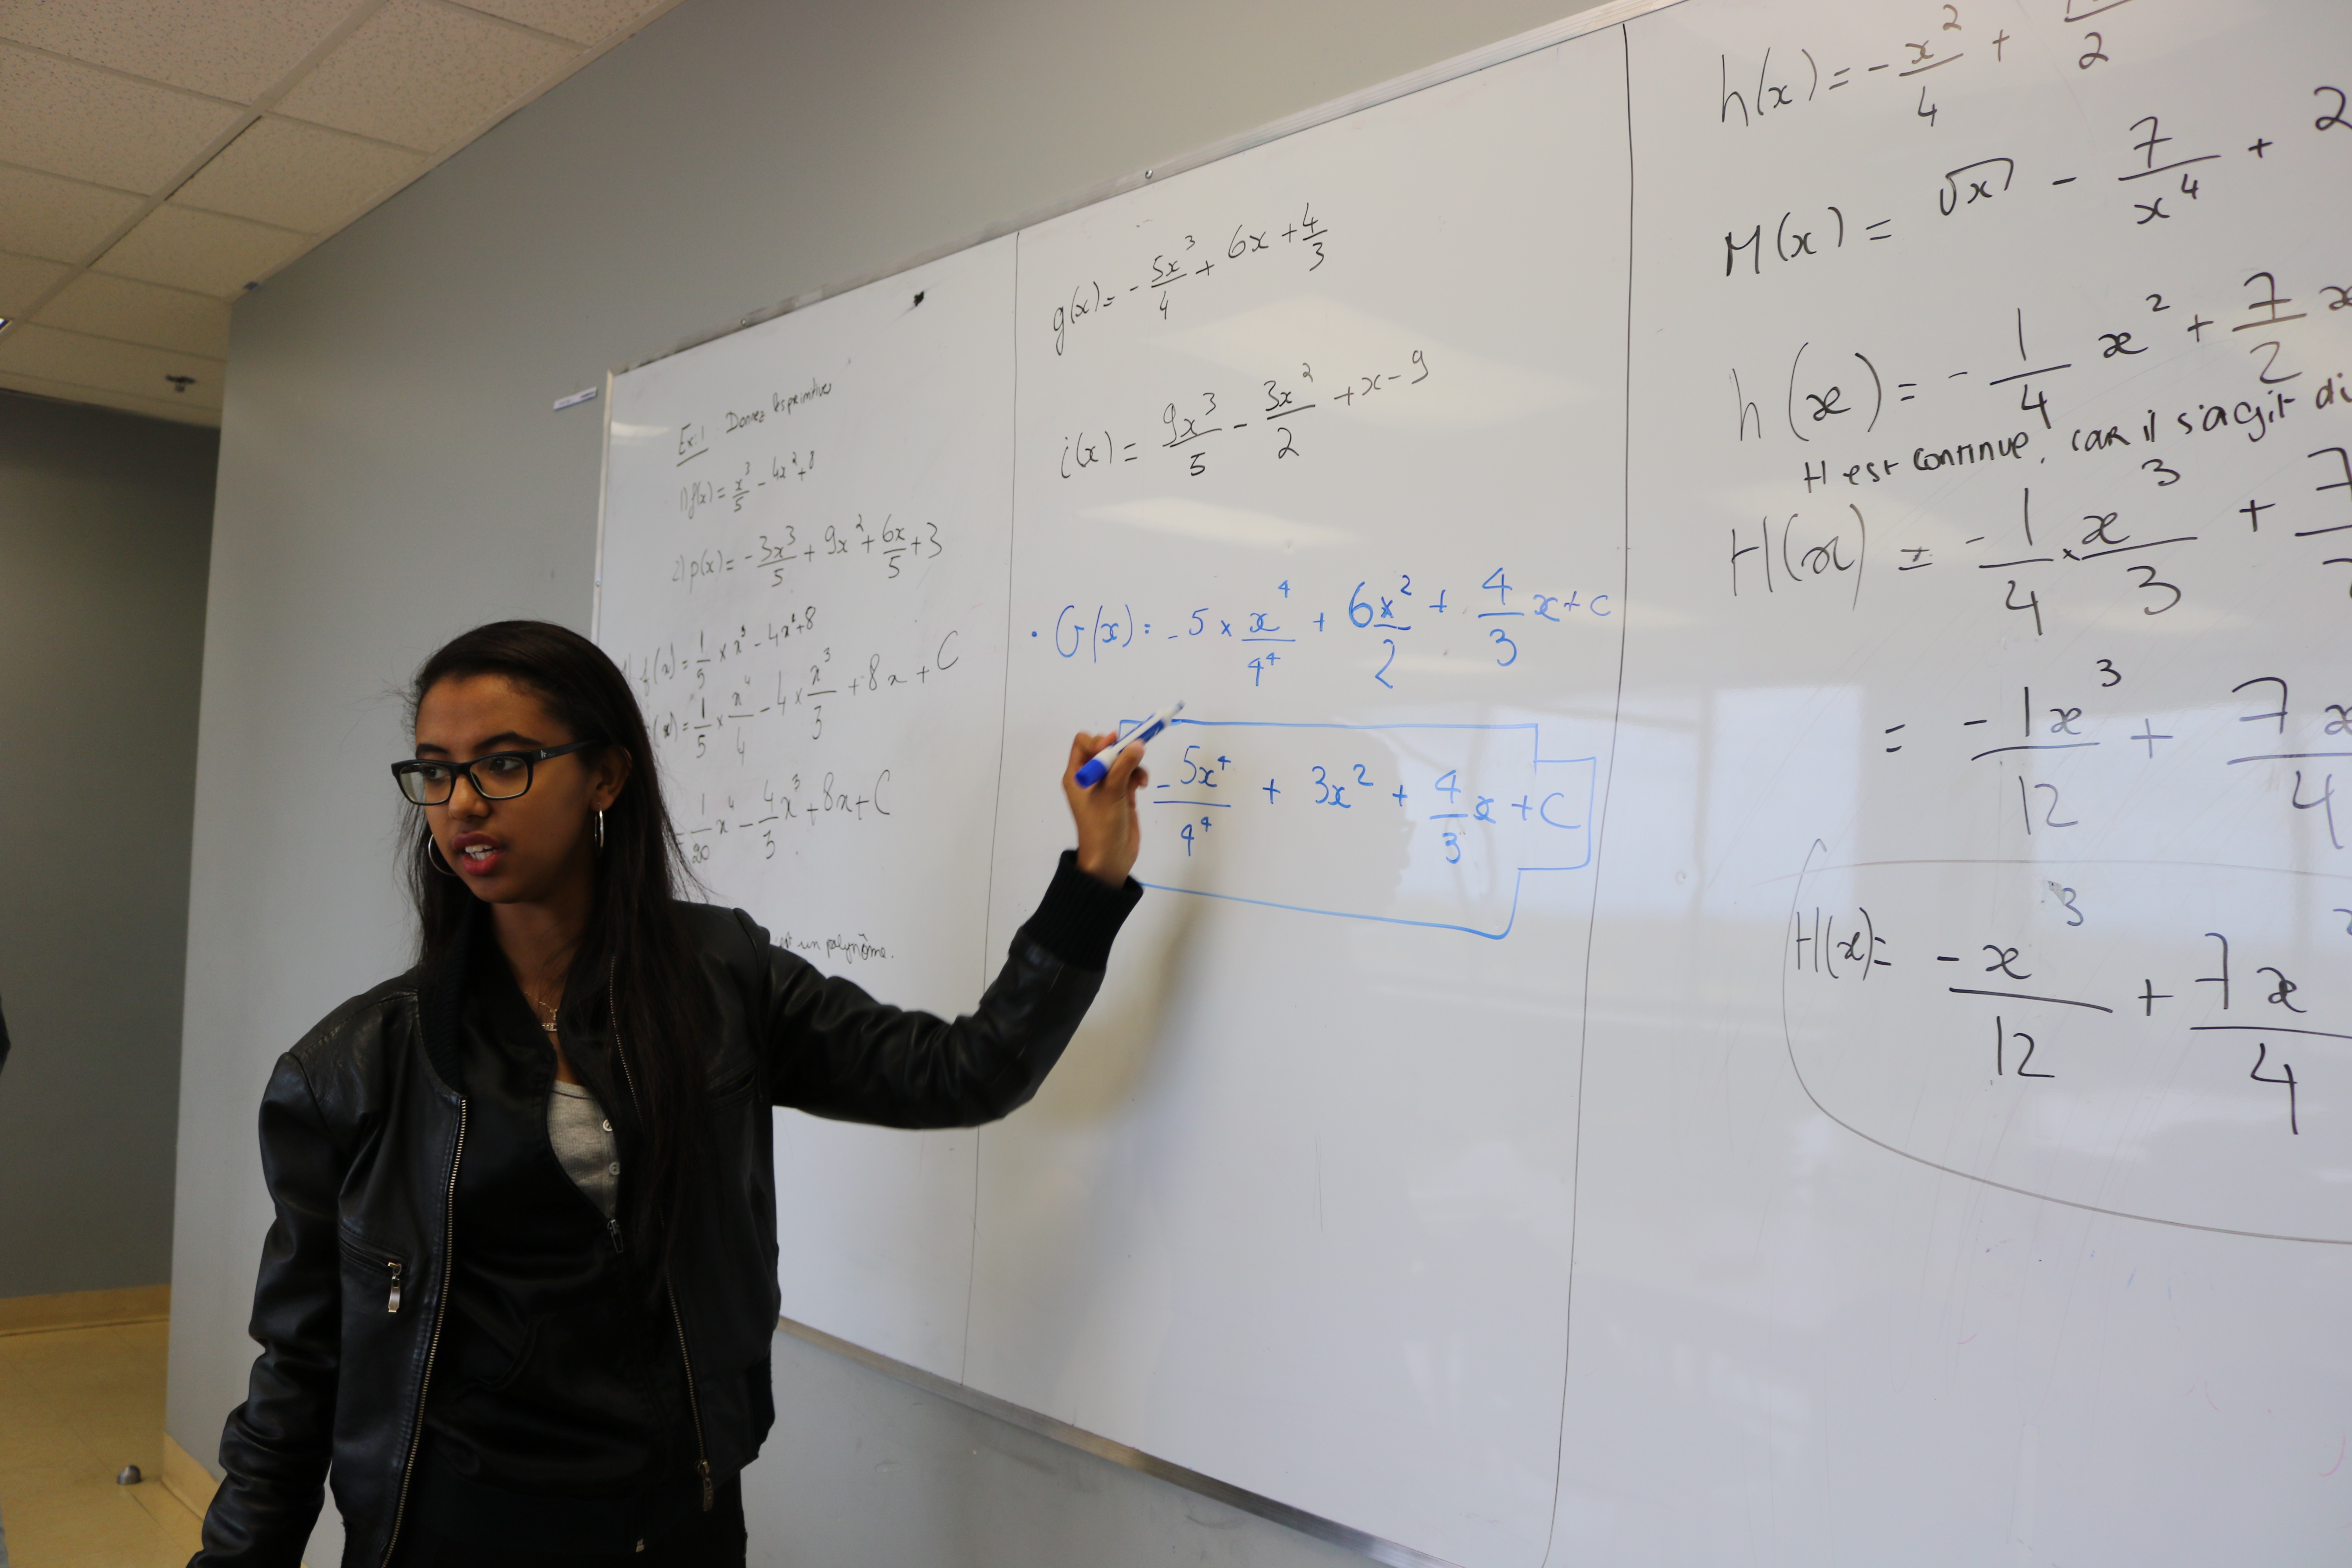 Ex:1 Donnez les primitives
1) f(x) = x³/5 - 4x² + 8
2) p(x) = - 3x³/5 + 9x² + 6x/5 + 3
f(x) = 1/5 × x³ - 4x² + 8
(x) = 1/5 × x⁴/4 - 4 × x³/3 + 8x + C
1/20 x⁴ - 4/3 x³ + 8x + C
est un polynôme.
g(x) = - 5x³/4 + 6x + 4/3
i(x) = 9x³/5 - 3x²/2 + x - 9
· G(x) = - 5 × x⁴/4⁴ + 6x²/2 + 4/3 x + C
- 5x⁴/4⁴ + 3x² + 4/3 x + C
h(x) = - x²/4 + /2
M(x) = √x - 7/x⁴ + 2
h(x) = - 1/4 x² + 7/2 x
H est continue, car il s'agit d'
H(x) = - 1/4 × x³/3 + 7
= - 1x³/12 + 7x/4
H(x) = - x³/12 + 7x/4